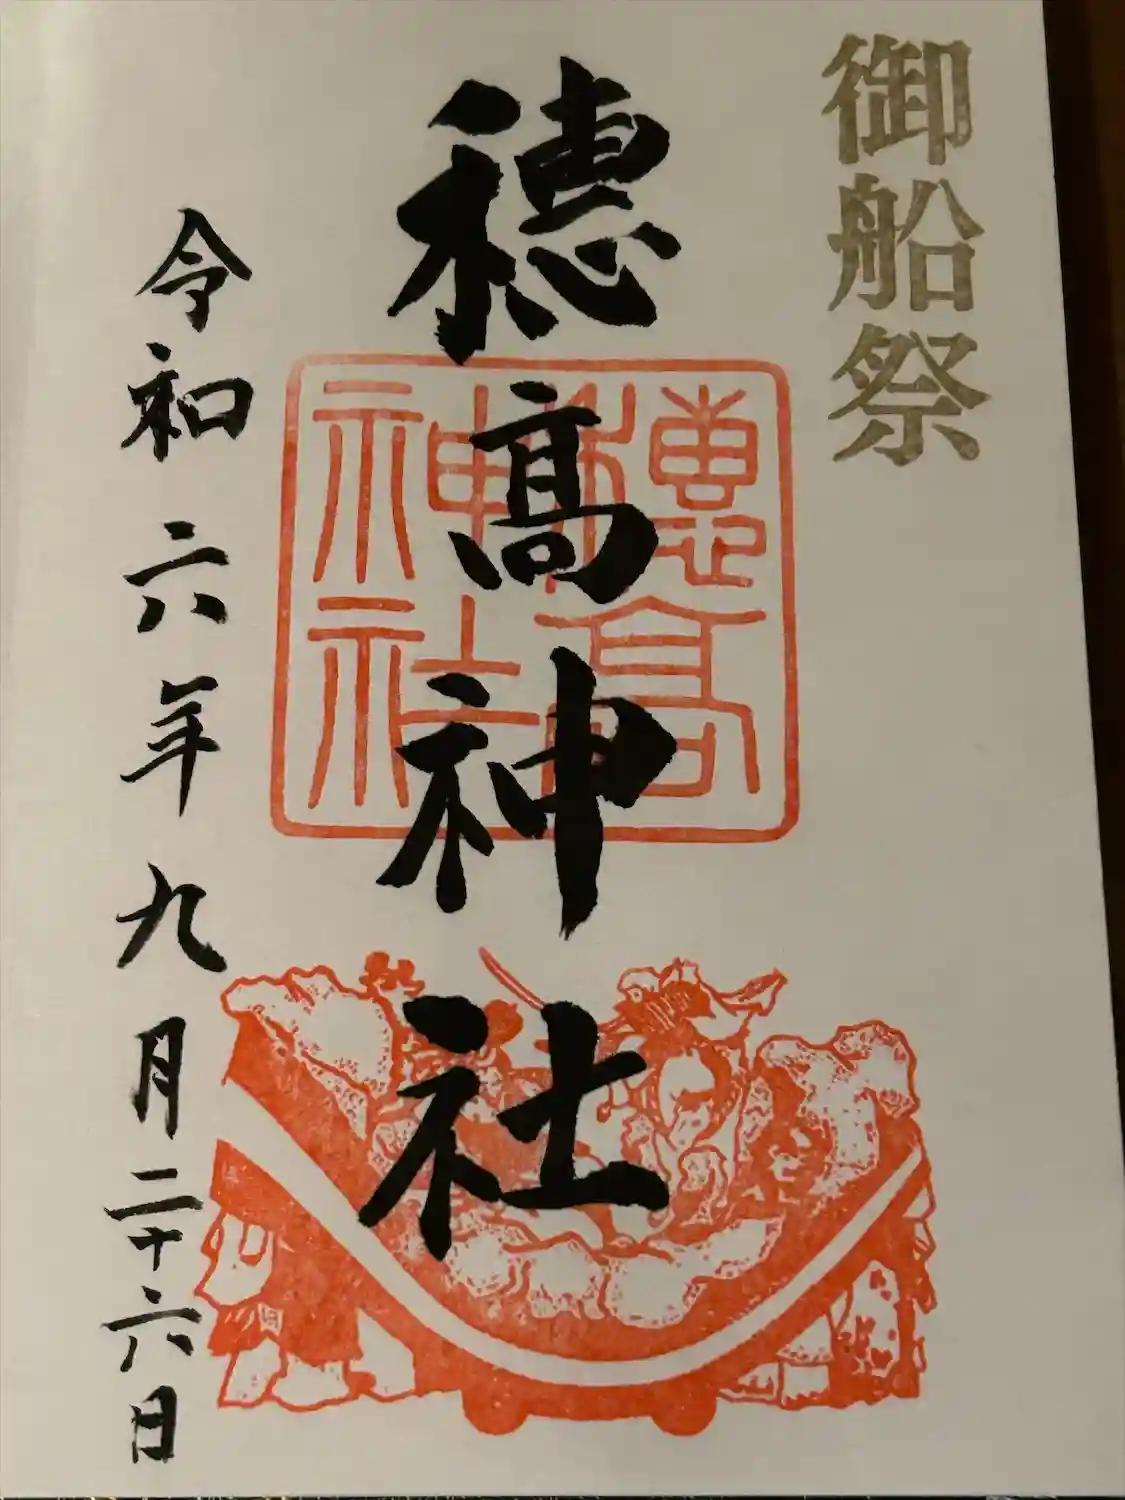 御船祭
穂髙神社
穂高
神社
令和六年九月二十六日